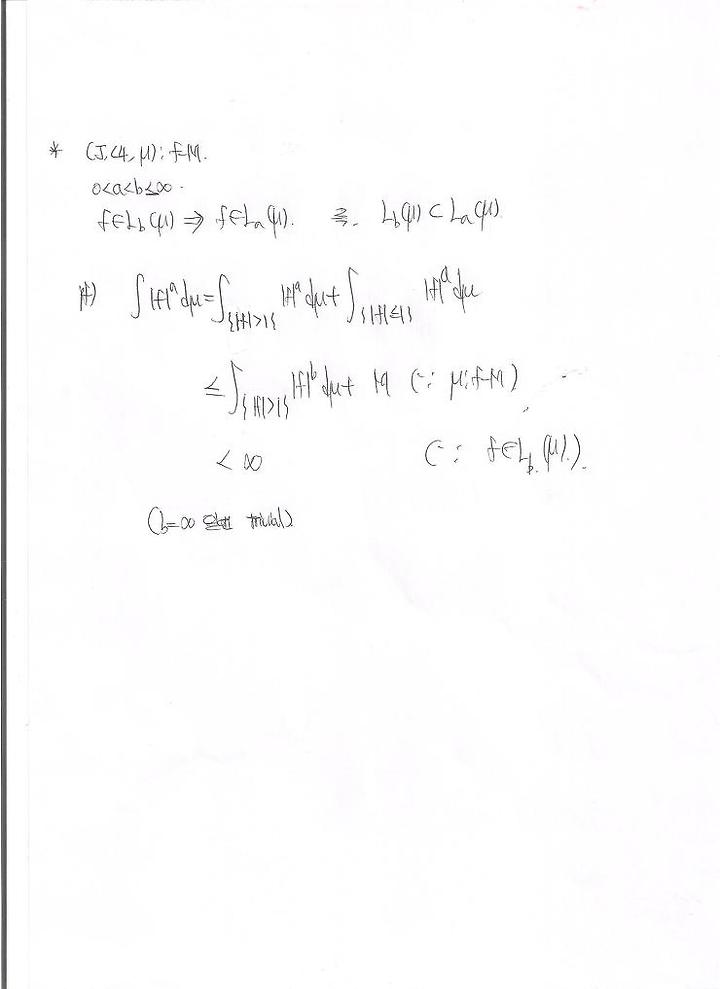 * (J, A, μ) : f-M.
0<a<b≤∞.
f∈L_b(μ) ⇒ f∈L_a(μ). 즉. L_b(μ) ⊂ L_a(μ)
pf) ∫|f|^a dμ = ∫_{{|f|>1}} |f|^a dμ + ∫_{{|f|≤1}} |f|^a dμ
≤ ∫_{{|f|>1}} |f|^b dμ + M (∵ μ: f-M)
< ∞ (∵ f∈L_b(μ).).
(b=∞ 일땐 trivial)